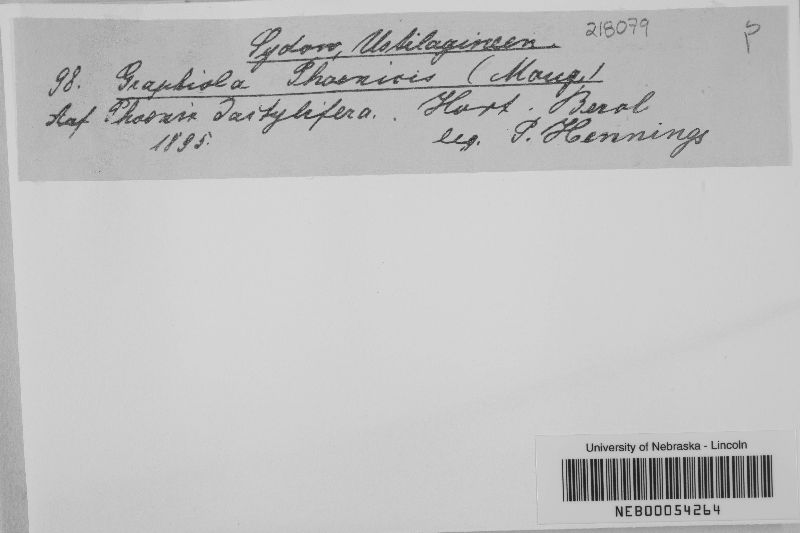 218079
Sydow, Ustilagineen.
98. Graphiola Phoenicis (Moug.)
Auf Phoenix dactylifera. Hort. Berol
1895. leg. P. Hennings
University of Nebraska - Lincoln
NEB00054264